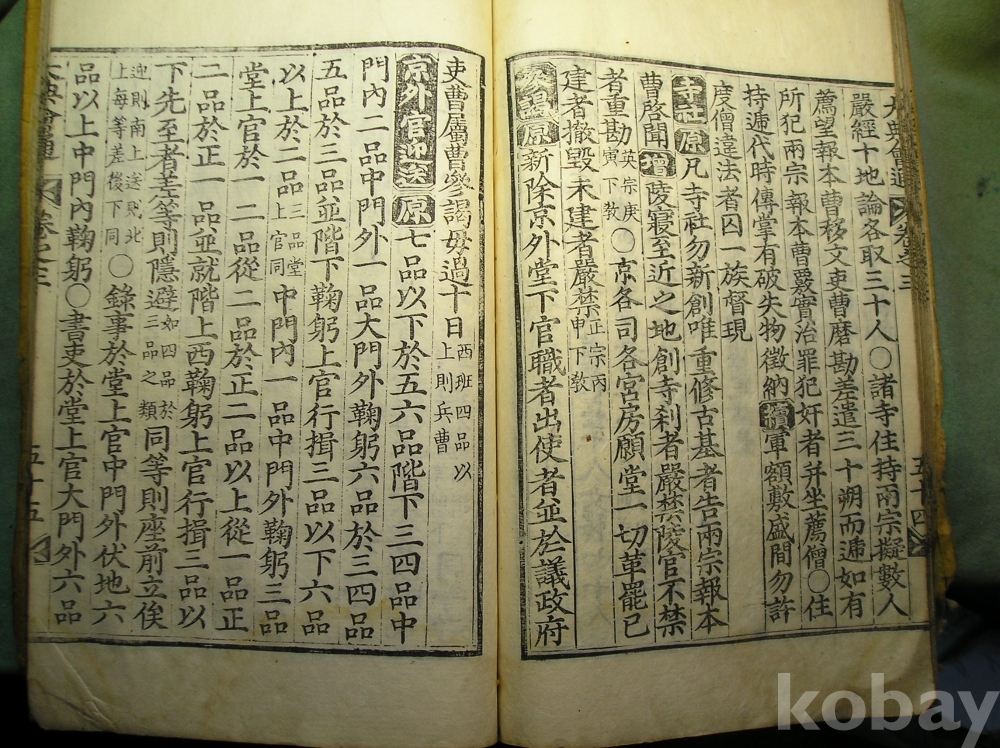 大典會通 卷之三 五十四
嚴經十地論各取三十人○諸寺住持兩宗擬數人
薦望報本曹移文吏曹磨勘差遣三十朔而遞如有
所犯兩宗報本曹覈實治罪犯奸者幷坐薦僧○住
持遞代時傳掌有破失物徵納 續 軍額敷盛間勿許
度僧違法者囚一族督現
寺社 原 凡寺社勿新創唯重修古基者告兩宗報本
曹啓聞 增 陵寢至近之地創寺刹者嚴禁陵官不禁
者重勘 英宗庚寅下敎 ○京各司各宮房願堂一切革罷已
建者撤毁未建者嚴禁 正宗丙申下敎
參謁 原 新除京外堂下官職者出使者並於議政府
吏曹屬曹參謁毋過十日 西班四品以上則兵曹
京外官迎送 原 七品以下於五六品階下三四品中
門內二品中門外一品大門外鞠躬六品於三四品
五品於三品並階下鞠躬上官行揖三品以下六品
以上於二品 三品堂上官同 中門內一品中門外鞠躬三品
堂上官於一二品從二品於正二品以上從一品正
二品於正一品並就階上西鞠躬上官行揖三品以
下先至者差等則隱避 如四品於三品之類 同等則座前立俟
迎則南上送則北上每等差後下同 ○錄事於堂上官中門外伏地六
品以上中門內鞠躬○書吏於堂上官大門外六品
大典會通 卷之三 五十五
kobay